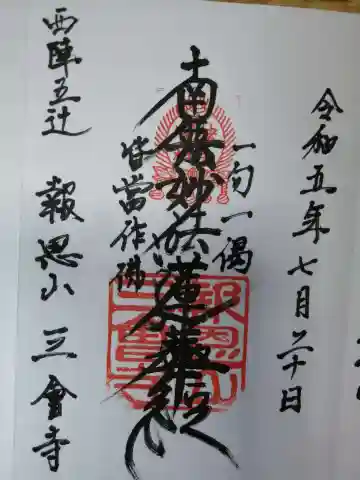 令和五年七月二十日
一句一偈
南無妙法蓮華経
皆當作佛
西陣五辻
報恩山 三會寺